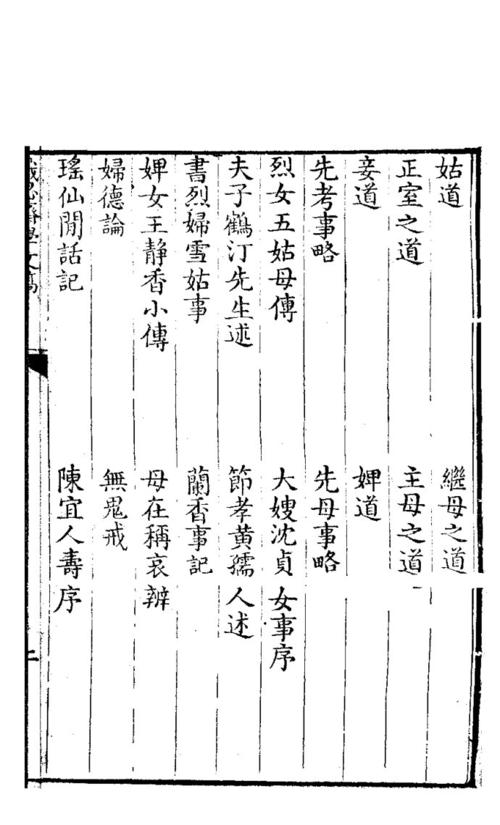 姑道　繼母之道
正室之道　主母之道
妾道　婢道
先考事略　先母事略
烈女五姑母傳　大嫂沈貞女事序
夫子鶴汀先生述　節孝黄孺人述
書烈婦雪姑事　蘭香事記
婢女王靜香小傳　母在稱哀辨
婦德論　無鬼戒
瑤仙閒話記　陳宜人壽序